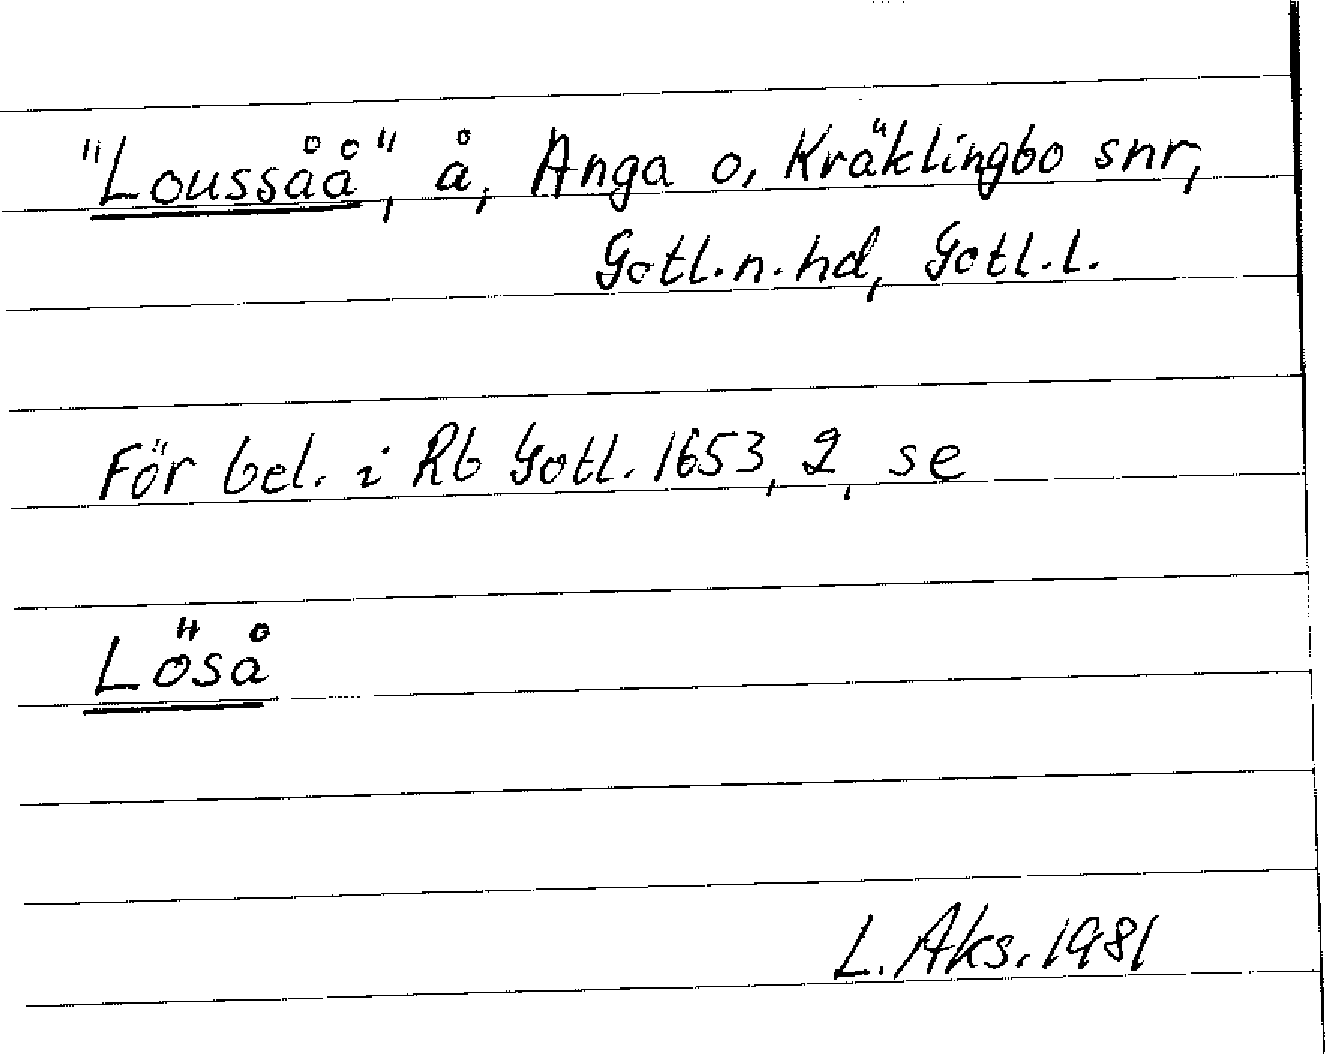 "Loussåå", å, Anga o, Kräklingbo snr,
Gotl.n.hd, Gotl.l.
För bel. i Rb Gotl. 1653, 2, se
Löså
L. Aks. 1981